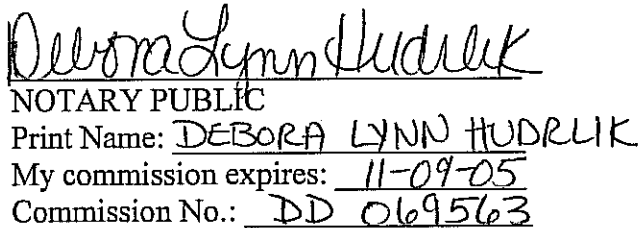 Debora Lynn Hudrlik
NOTARY PUBLIC
Print Name: DEBORA LYNN HUDRLIK
My commission expires: 11-09-05
Commission No.: DD 069563